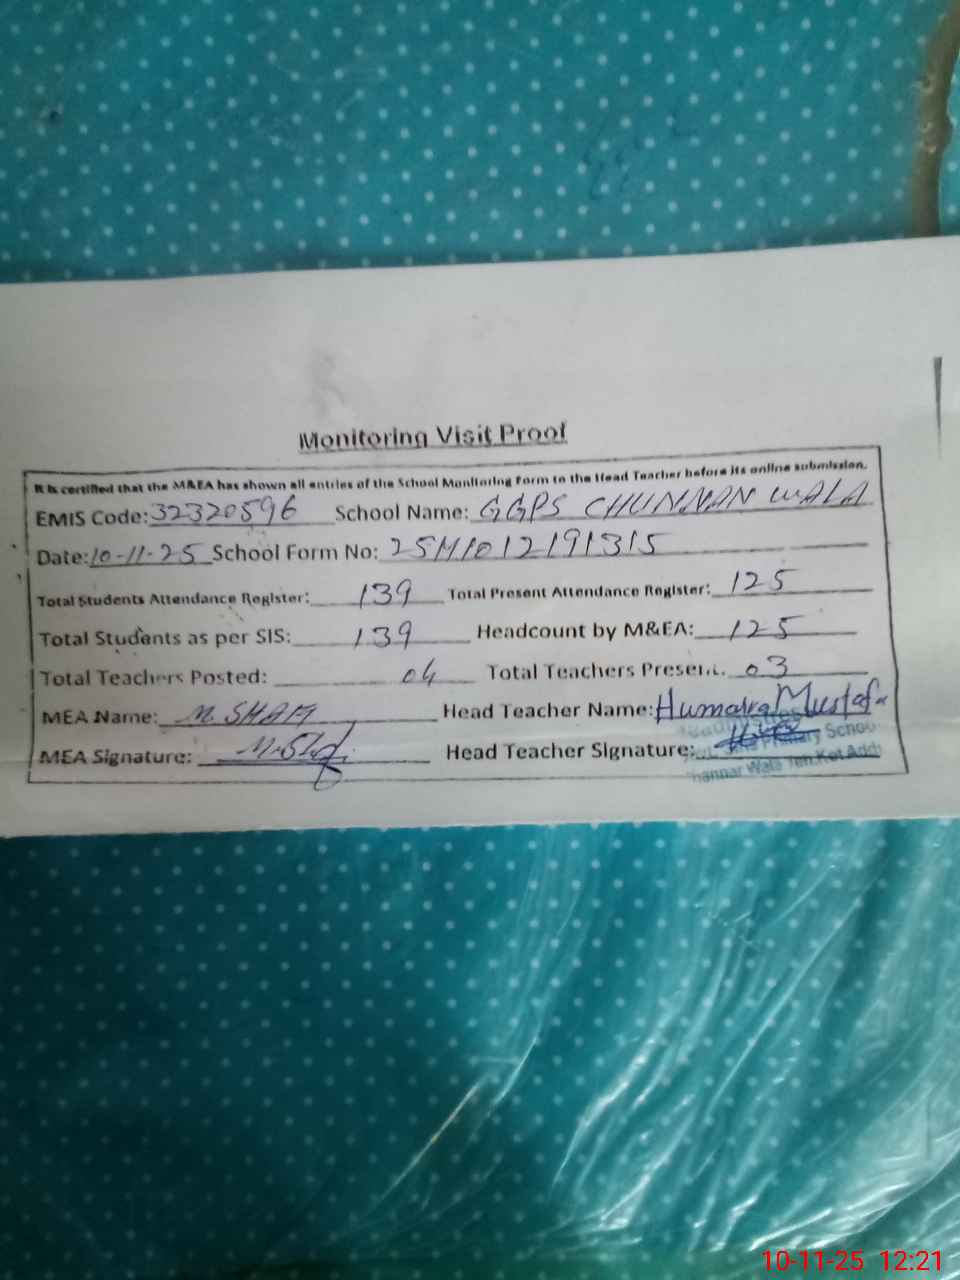 Monitoring Visit Proof
It is certified that the M&EA has shown all entries of the School Monitoring Form to the Head Teacher before its online submission.
EMIS Code: 32320596 School Name: GGPS CHUNNAN WALA
Date: 10-11-25 School Form No: 25M1012191315
Total Students Attendance Register: 139 Total Present Attendance Register: 125
Total Students as per SIS: 139 Headcount by M&EA: 125
Total Teachers Posted: 04 Total Teachers Present. 03
MEA Name: M. SHAFI Head Teacher Name: Humaira Mustafa
MEA Signature: Head Teacher Signature:
Primary School
Wala Teh. Kot Addu
10-11-25 12:21